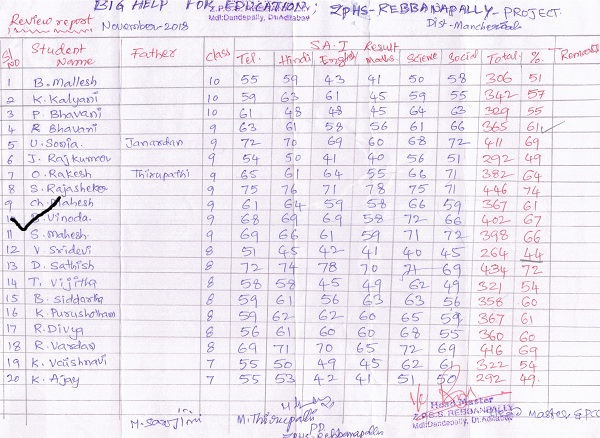 BIG HELP FOR EDUCATION; ZPHS-REBBANAPALLY-PROJECT
Review report November-2018 Mdl:Dandepally, Dt.Adilabad Dist-Mancherial
SA-I Result
Sl NO Student Name Father Class Tel. Hindi English Maths Science Social Total % Remarks
1 B. Mallesh 10 55 59 43 41 50 58 306 51
2 K. Kalyani 10 59 63 61 45 59 55 342 57
3 P. Bhavani 10 61 48 48 45 64 63 329 55
4 B Bhavani 9 63 61 58 56 61 66 365 61
5 U. Sonia. Janardan 9 72 70 69 60 68 72 411 69
6 J. Rajkumar 9 54 50 41 40 56 51 292 49
7 O. Rakesh Thirupathi 9 65 61 64 55 66 71 382 64
8 S. Rajasheker 9 75 76 71 78 75 71 446 74
9 Ch. Mahesh 9 61 64 59 58 66 59 367 61
Vinoda. 9 68 69 69 58 72 66 402 67
11 S. Mahesh 9 69 66 61 59 71 72 398 66
12 V. Sridevi 8 51 45 42 41 40 45 264 44
13 D. Sathish 8 72 74 78 70 71 69 434 72
14 T. Vijitha 8 58 58 45 49 62 49 321 54
15 B. Siddartha 8 59 61 56 63 63 56 358 60
16 K. Purushotham 8 59 62 62 60 65 59 367 61
17 R. Divya 8 56 61 60 60 68 55 360 60
18 R. Vardan 8 69 71 70 65 72 69 416 69
19 K. Vaishnavi 7 55 50 49 45 62 61 322 54
20 K. Ajay 7 55 53 42 41 51 50 292 49.
M. Sarojini M. Thirupathi PD ZPHS-Rebbanapally Head Master Z.P.H.S REBBANAPALLY Mdl:Dandepally, Dt.Adilabad Master &